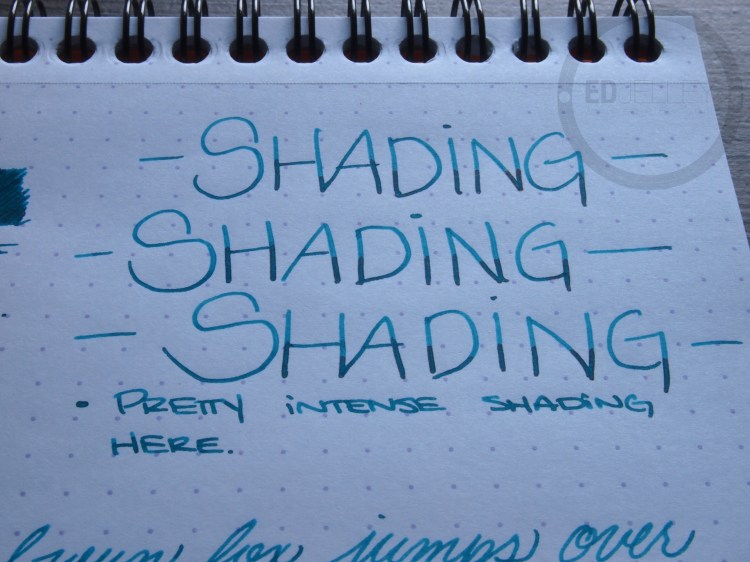 - SHADiNG -
- SHADiNG -
- SHADiNG -
• PRETTY iNTENSE SHADiNG
HERE.
brown fox jumps over